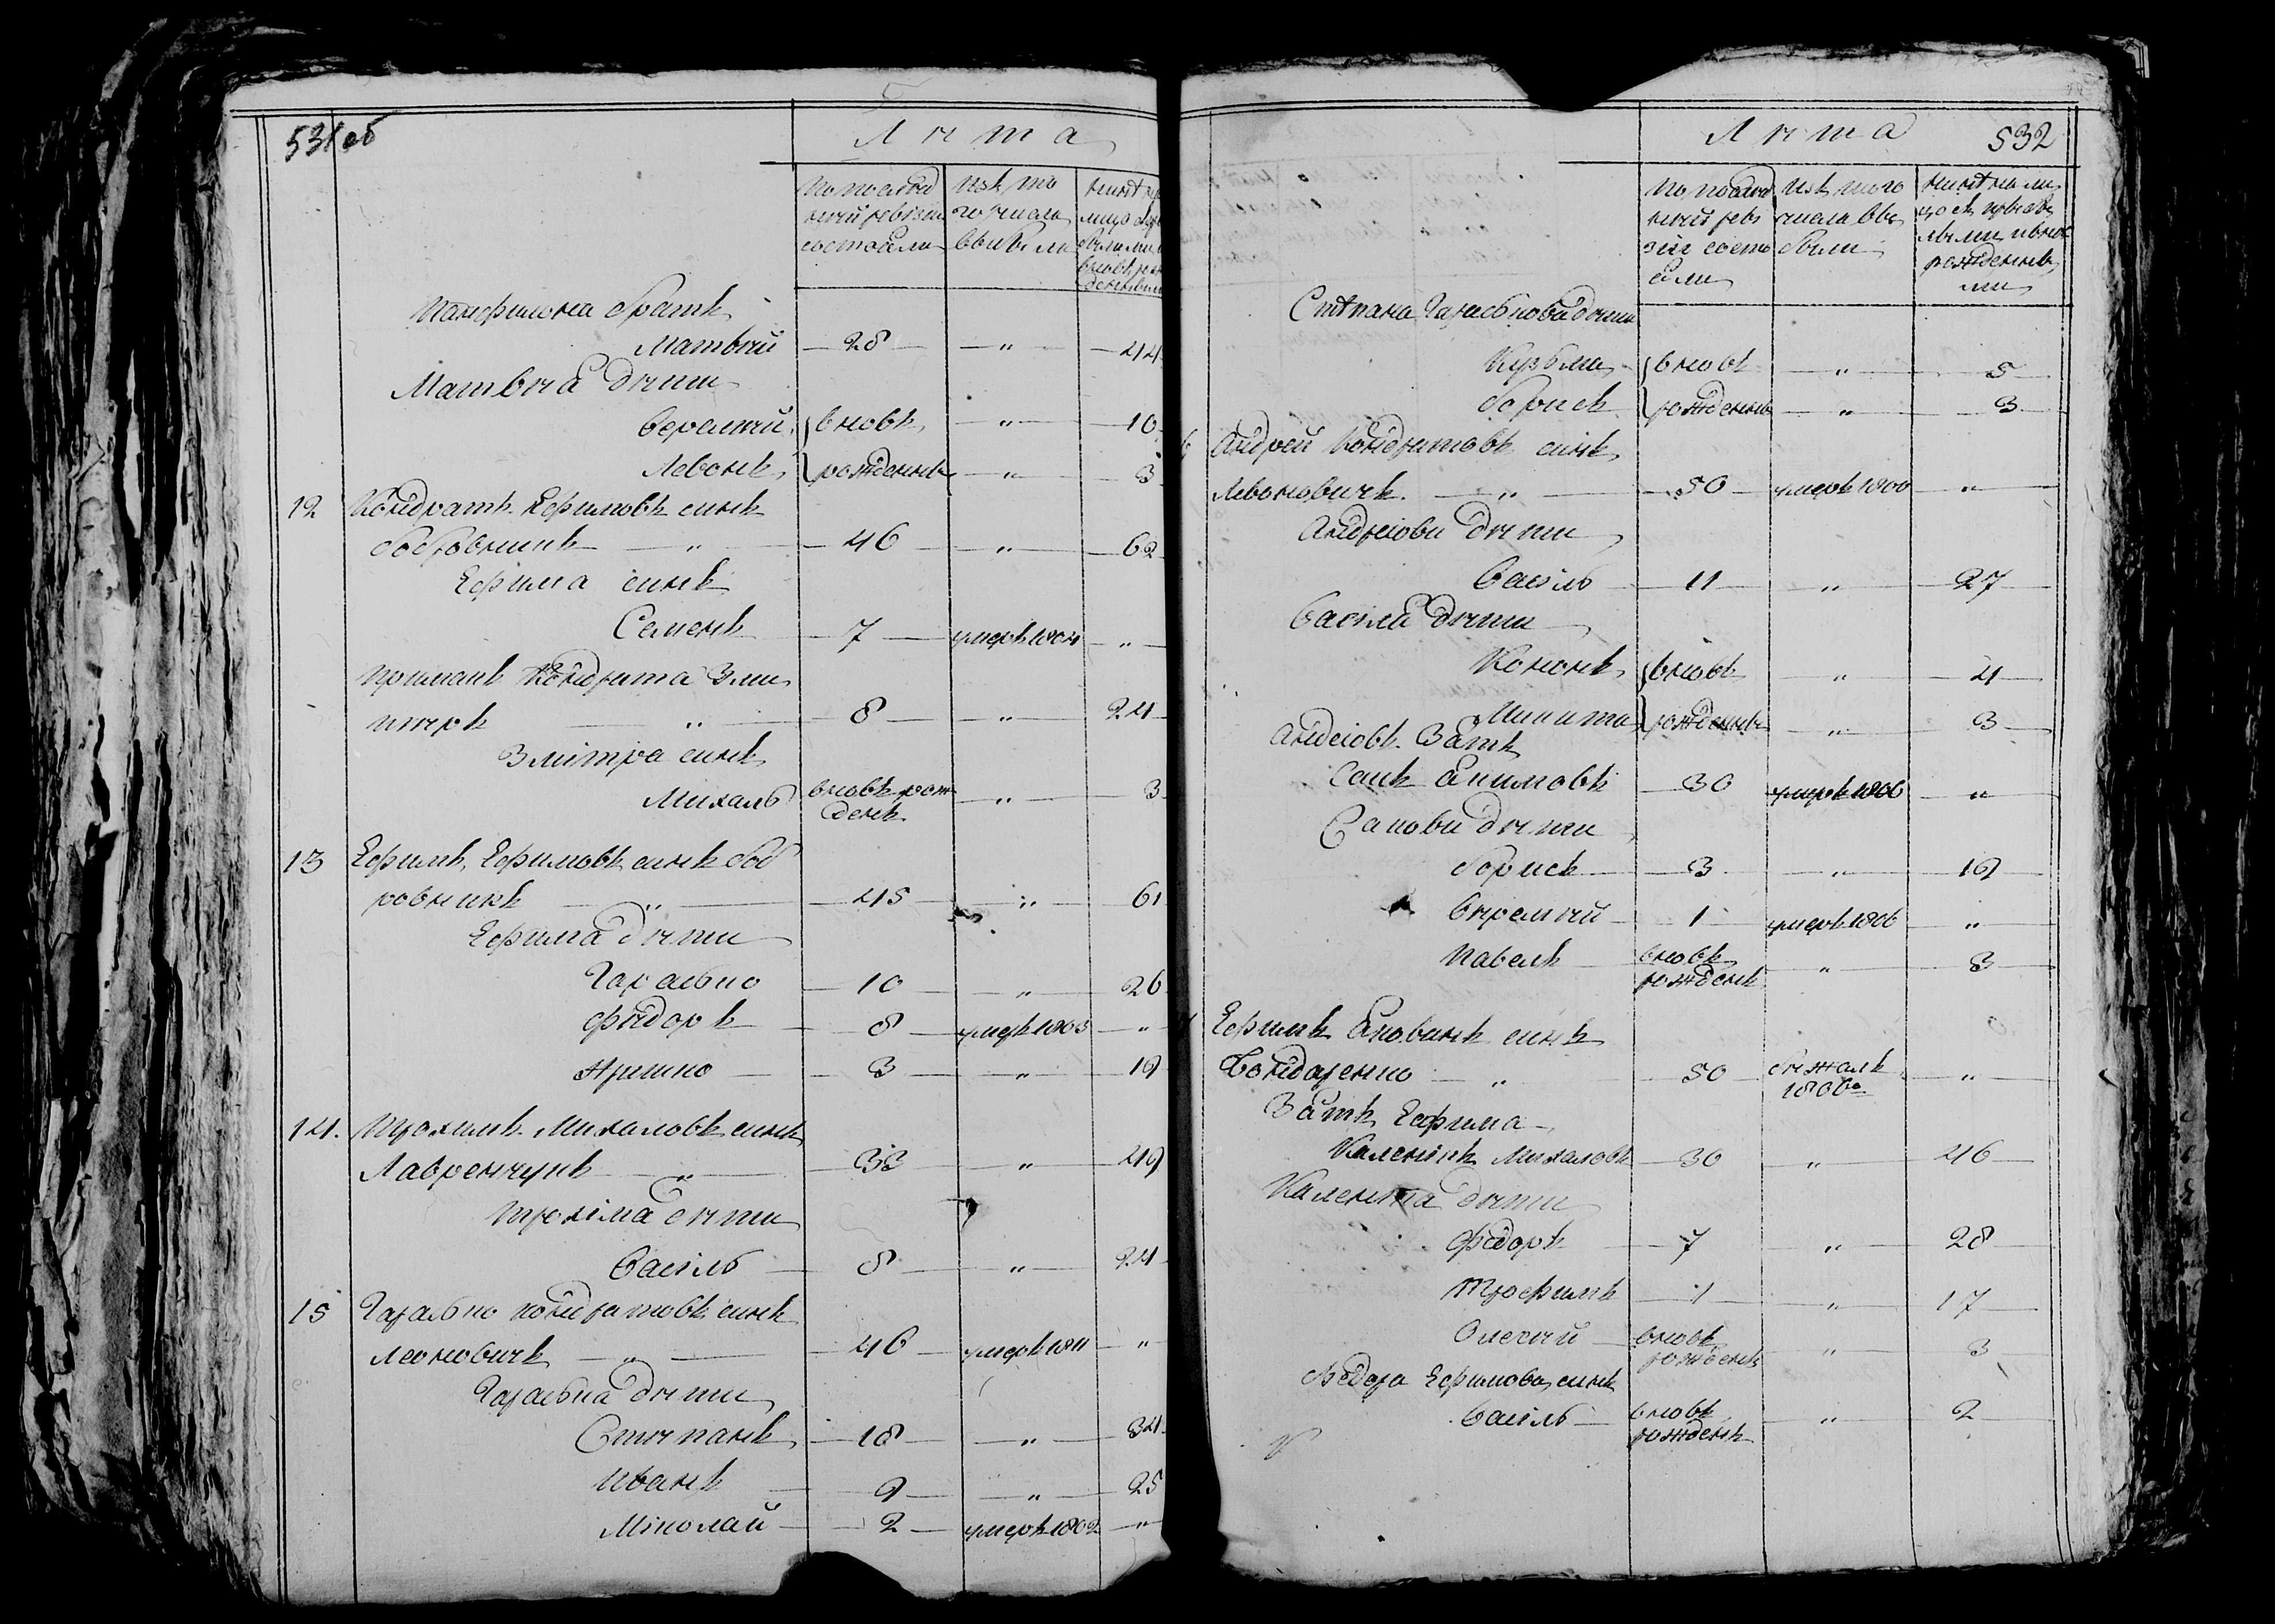 531 об
Лета
По послед
ней ревизии
состояли
Изъ то
го числа
выбыли
Ныне
лицо
вновь рож
денными
Панфилона братъ
Матвей — 28 — „ — 44
Матвея дети
Веремей вновь — „ — 10
Левонъ рожденны — „ — 3
12 Кондратъ Ефимовъ синъ
Бобровникъ — „ — 46 — „ — 62
Ефима синъ
Семенъ — 7 — умеръ 1804 — „
Приманъ Кондрата Зми
тръ — „ — 8 — „ — 24
Змітра синъ
Михаль вновь рож — „ — 3
денъ
13 Ефимъ Ефимовъ синъ Боб
ровникъ — „ — 45 — „ — 61
Ефима дети
Гарасько — 10 — „ — 26
Федоръ — 8 — умеръ 1803 — „
Яришко — 3 — „ — 19
14. Трохимъ Михаловъ синъ
Лавренчукъ — „ — 33 — „ — 49
Трохіма дети
Васіль — 8 — „ — 24
15 Гарасько Кондратовъ синъ
Леоновичъ — „ — 46 — умеръ 1811 — „
Гараська дети
Степанъ — 18 — „ — 34
Иванъ — 9 — „ — 25
Міколай — 2 — умеръ 1802 — „
Лета 532
По послед
ней реви
зіи состо
яли
Изъ того
числа вы
были
Ныне на ли
цо съ прибы
лыми и вновь
рожденны
ми
Степана Гараськови дети
Кузьма вновь — „ — 5
Борисъ рожденны — „ — 3
Андрей Кондратовъ синъ
Левоновичъ — „ — 50 — умеръ 1800 — „
Андреіови дети
Васіль — 11 — „ — 27
Васіля дети
Кононъ вновь — „ — 4
Микита рожденны — „ — 3
Андеіовъ Зять
Сакъ Акимовъ — 30 — умеръ 1806 — „
Сакови дети
Борисъ — 3 — „ — 19
Веремей — 1 — умеръ 1806 — „
Павелъ вновь — „ — 3
рожденъ
Ефимъ синъ
Бондаренко — „ — 50 — бежалъ — „
1806го
Зять Ефима
Каленікъ Михаловъ — 30 — „ — 46
Каленіка дети
Федоръ — 7 — „ — 28
Трофимъ — 1 — „ — 17
Олексей вновь — „ — 3
рожденъ
Федора Ефимова синъ
Васіль вновь — „ — 2
рожденъ